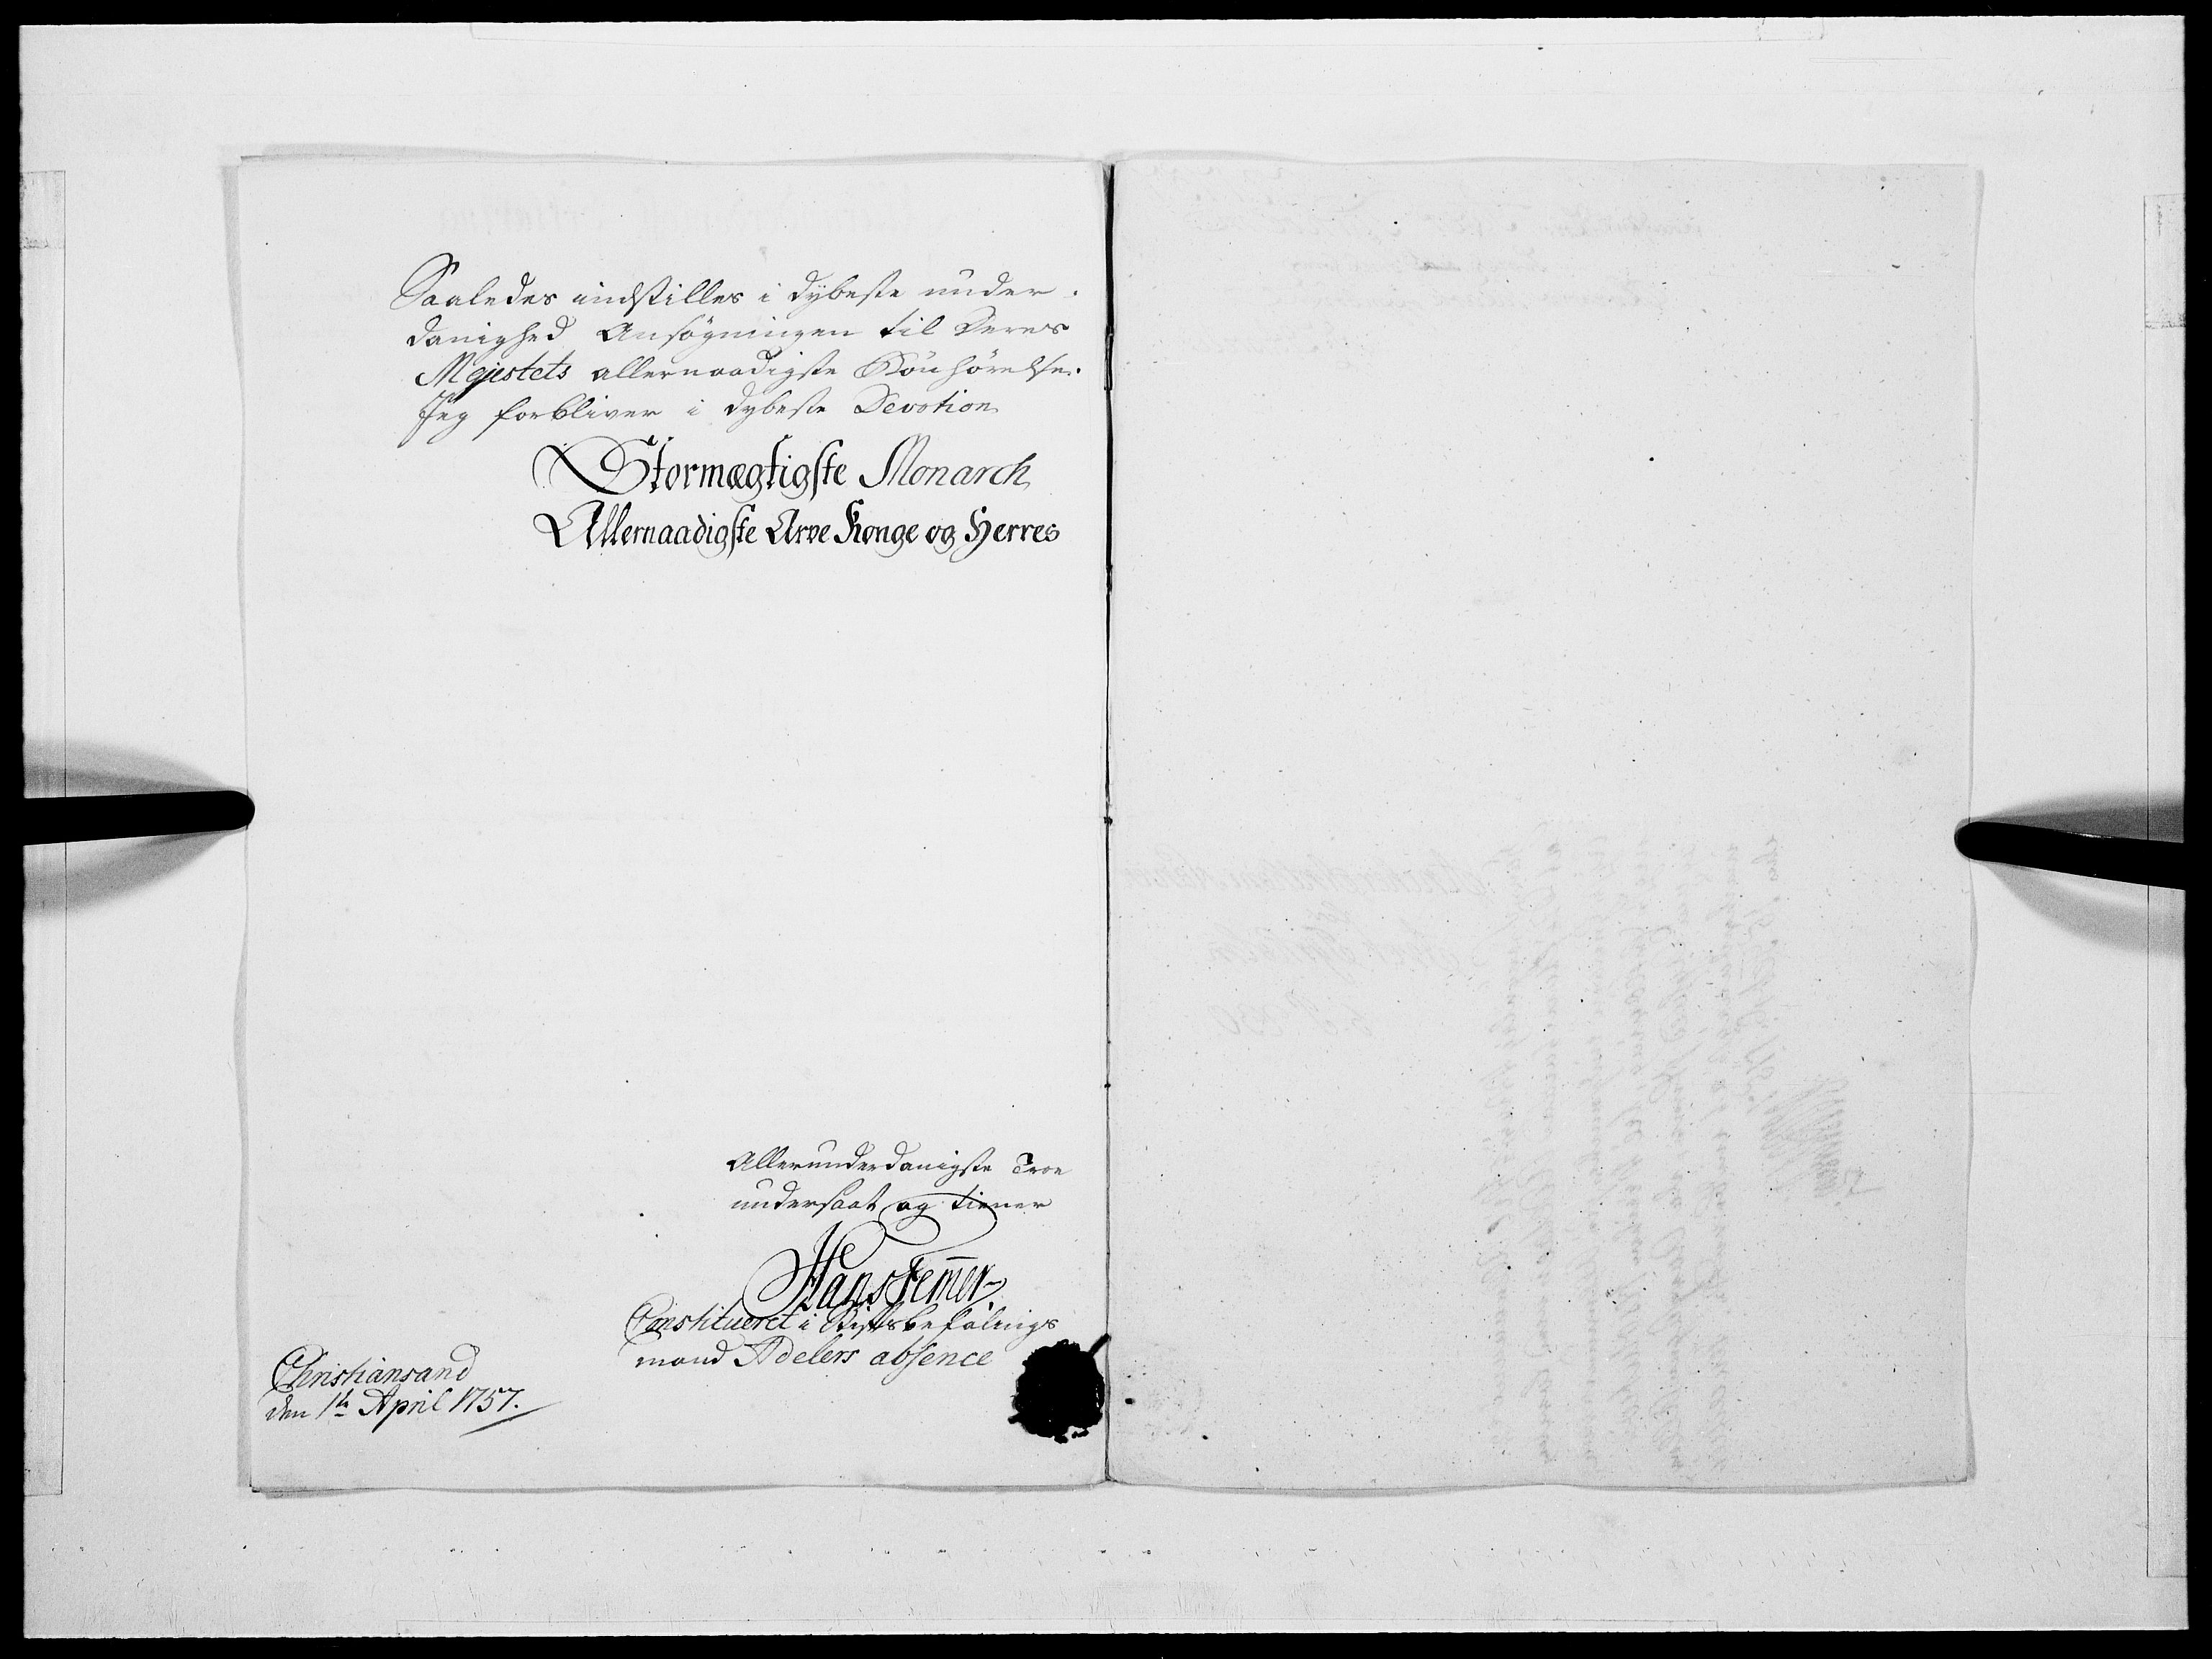 Saaledes indstilles i dybeste under-
danighed Ansøgningen til Deres
Majestets allernaadigste Bönhörelse.
Jeg forbliver i dybeste Devotion
Stormægtigste Monarch
Allernaadigste Arve Konge og Herres
Allerunderdanigste Troe
undersaat og tiener
Hans Fem̅er
Constitueret i Stiftsbefalings
mand Adelers absence
Christiansand
den 1te April 1757.